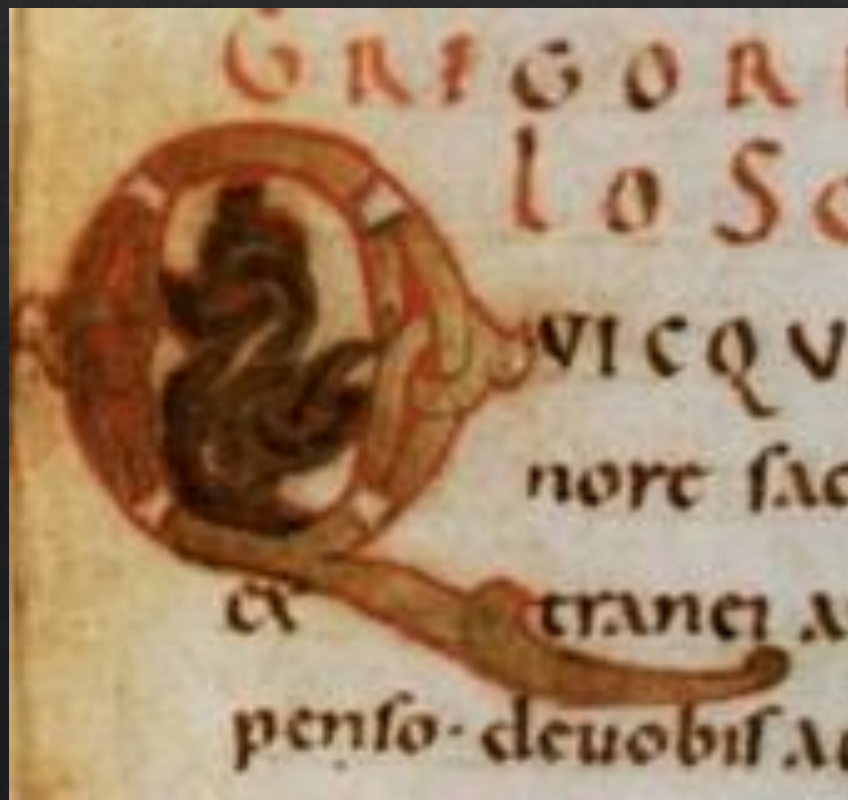 GRIGOR
LOS
QVICQV
nore sac
extranei a
penso · deuobis